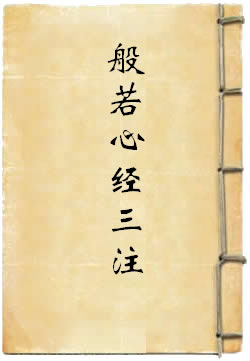 般若心经三注